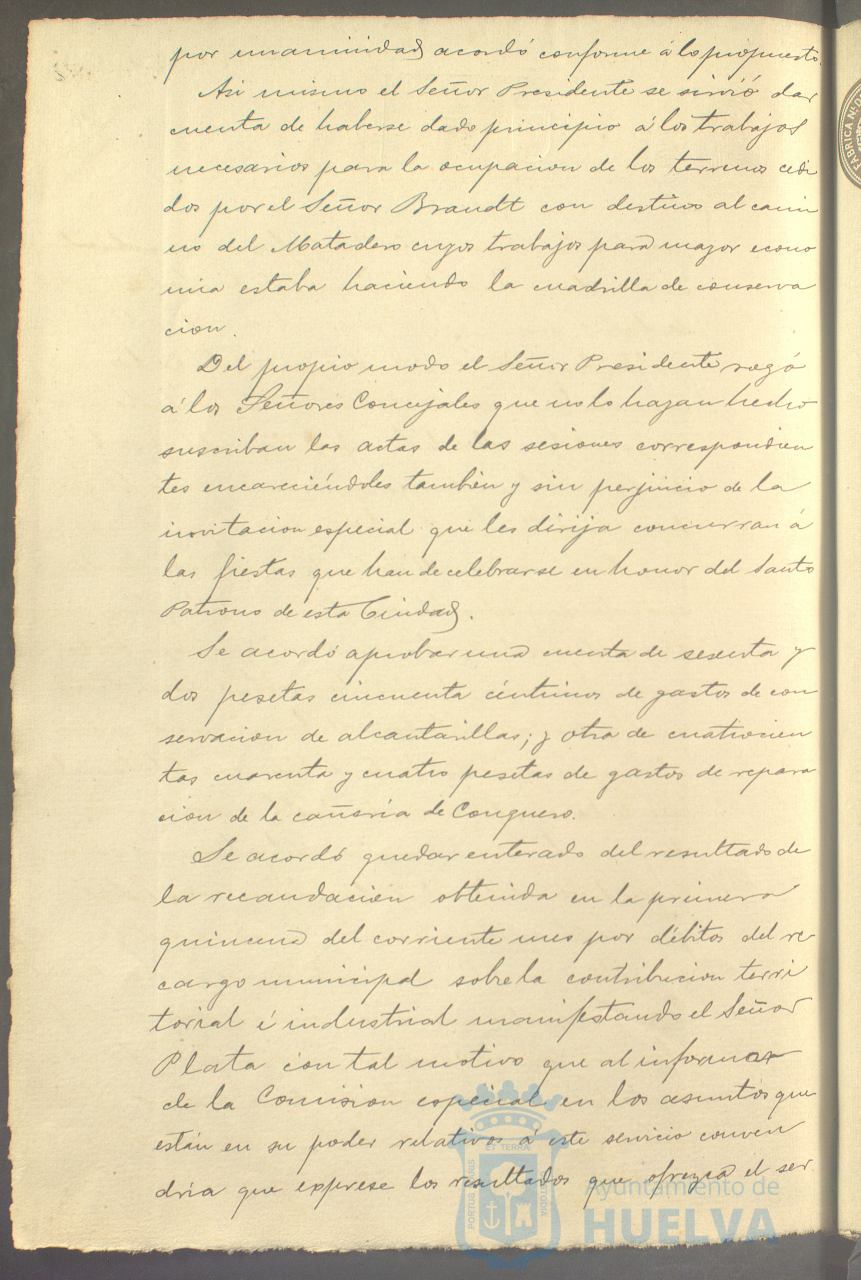 por unanimidad acordó conforme á lo propuesto.
Asi mismo el Señor Presidente se sirvió dar
cuenta de haberse dado principio á los trabajos
necesarios para la ocupacion de los terrenos cedi
dos por el Señor Brandt con destino al cami
no del Matadero cuyos trabajos para mayor econo
mia estaba haciendo la cuadrilla de conserva
cion.
Del propio modo el Señor Presidente rogó
á los Señores Concejales que no lo hayan hecho
suscriban las actas de las sesiones correspondien
tes encareciéndoles tambien y sin perjuicio de la
invitacion especial que les dirija concurran á
las fiestas que han de celebrarse en honor del Santo
Patrono de esta Ciudad.
Se acordó aprobar una cuenta de sesenta y
dos pesetas cincuenta céntimos de gastos de con
servacion de alcantarillas; y otra de cuatrocien
tas cuarenta y cuatro pesetas de gastos de repara
cion de la cañeria de Conquero.
Se acordó quedar enterado del resultado de
la recaudacion obtenida en la primera
quincena del corriente mes por débitos del re
cargo municipal sobre la contribucion terri
torial é industrial manifestando el Señor
Plata con tal motivo que al informar
de la Comision especial en los asuntos que
están en su poder relativos á este servicio conven
dria que exprese los resultados que ofrezca el ser
FABRICA Nl.
PORTUS MARIS
ET TERRAE
CUSTODIA
Ayuntamiento de
HUELVA